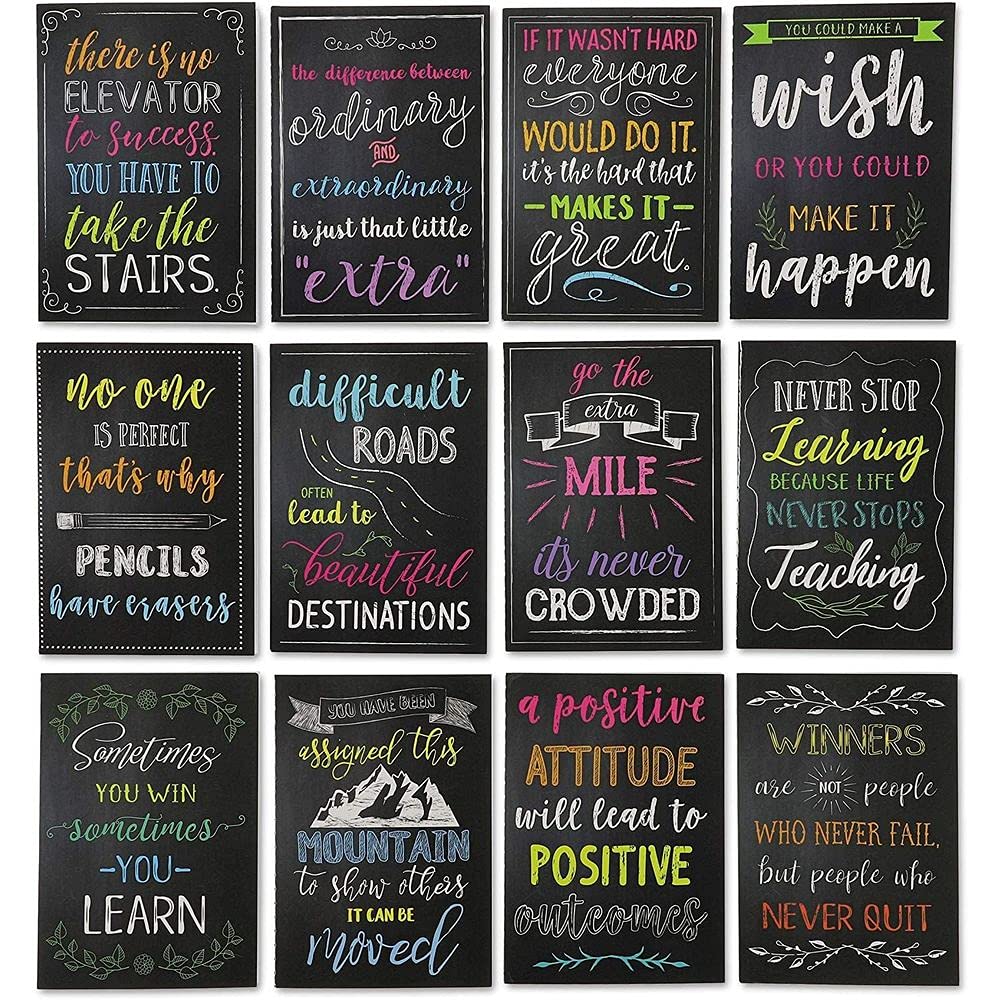 there is no
ELEVATOR
to success.
YOU HAVE TO
take the
STAIRS.
the difference between
ordinary
AND
extraordinary
is just that little
"extra"
IF IT WASN'T HARD
everyone
WOULD DO IT.
it's the hard that
MAKES IT
great.
YOU COULD MAKE A
wish
OR YOU COULD
MAKE IT
happen
no one
IS PERFECT
that's why
PENCILS
have erasers
difficult
ROADS
OFTEN
lead to
beautiful
DESTINATIONS
go the
extra
MILE
it's never
CROWDED
NEVER STOP
Learning
BECAUSE LIFE
NEVER STOPS
Teaching
Sometimes
YOU WIN
sometimes
-YOU-
LEARN
YOU HAVE BEEN
assigned this
MOUNTAIN
to show others
IT CAN BE
moved
a positive
ATTITUDE
will lead to
POSITIVE
outcomes
WINNERS
are NOT people
WHO NEVER FAIL,
but people who
NEVER QUIT